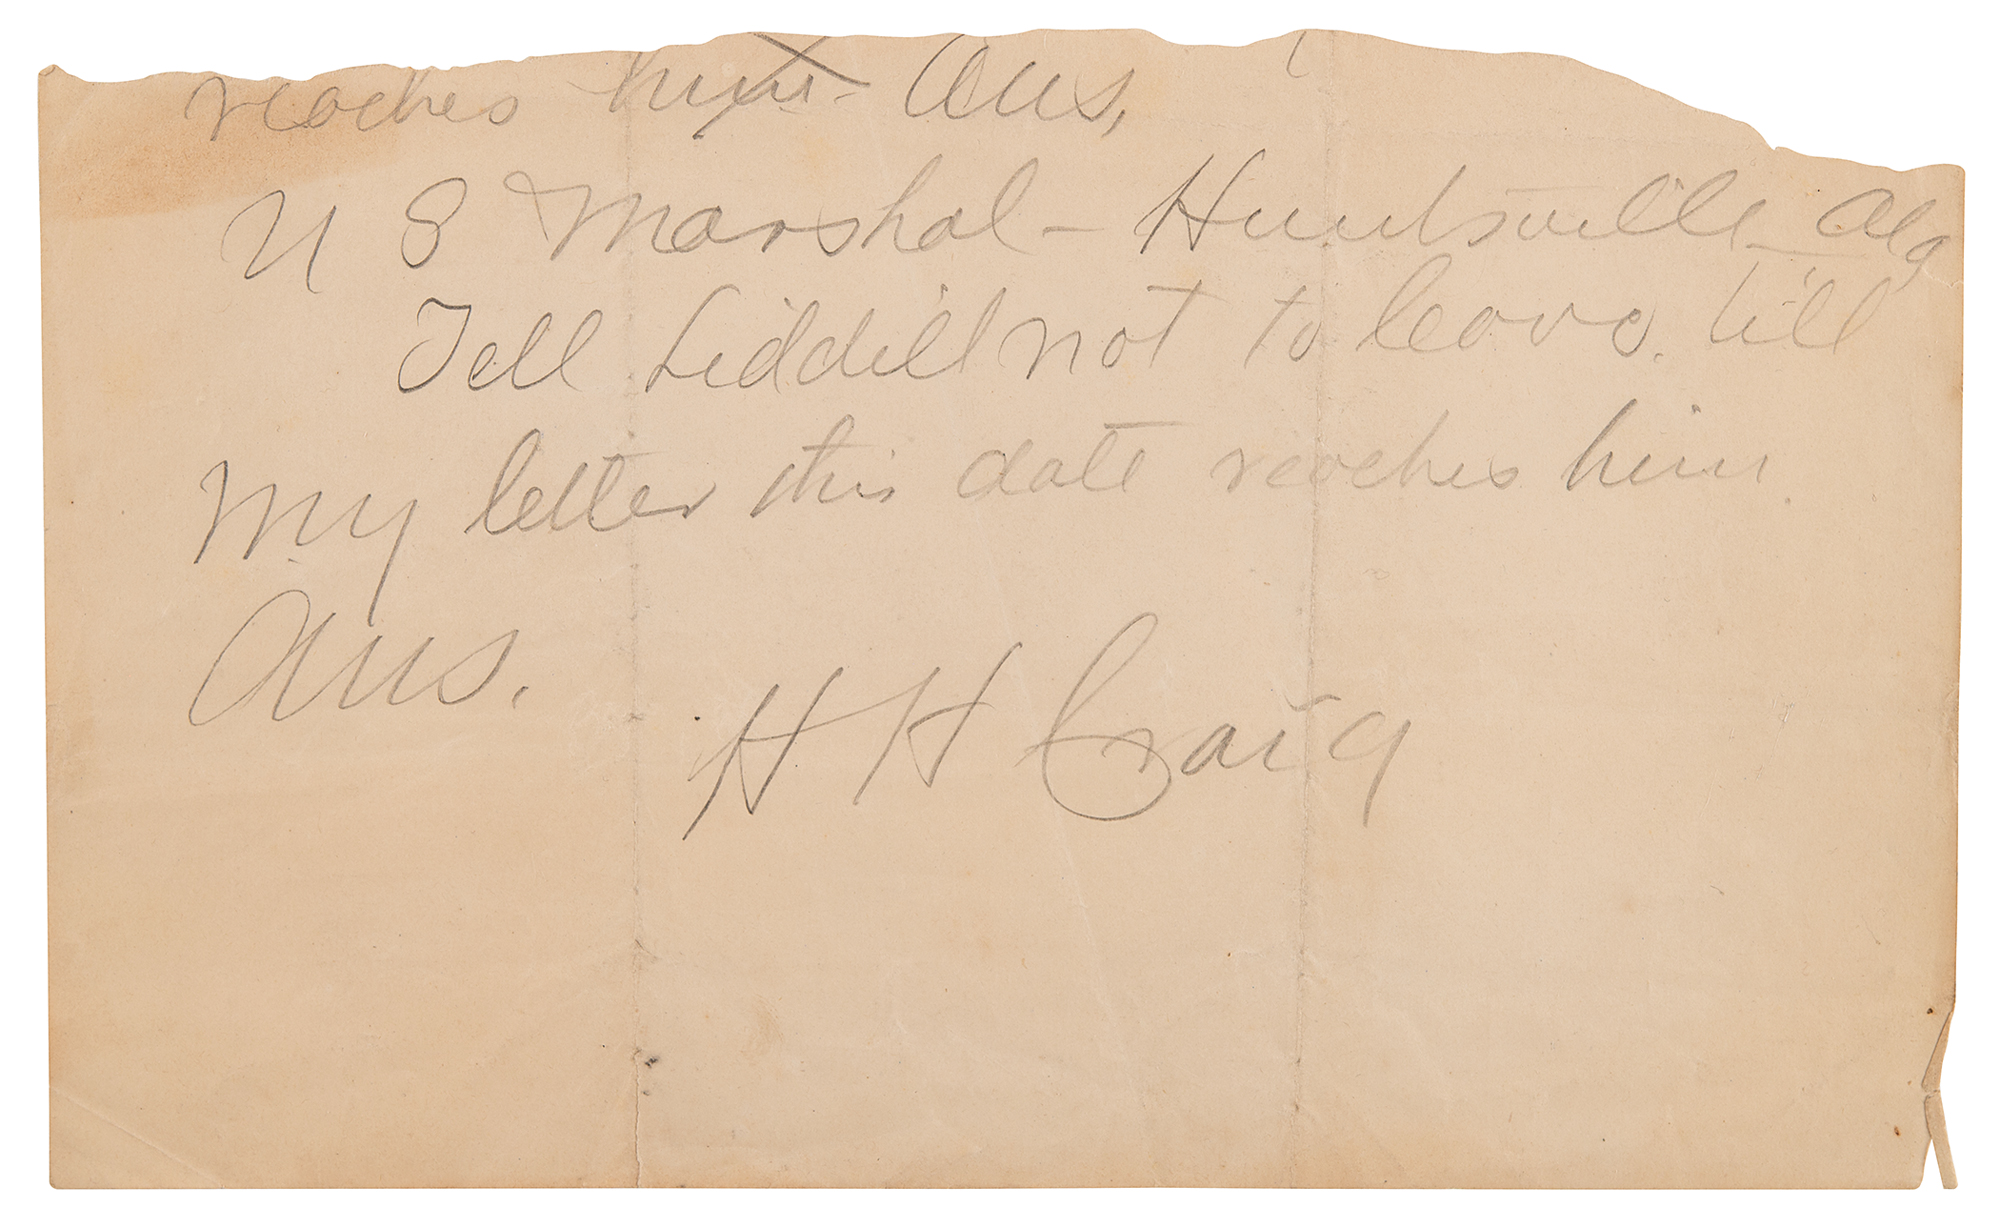 reaches him - Ans,
U S Marshal - Huntsville Ala
Tell Liddill not to leave till
My letter this date reaches him.
Ans.
H H Craig